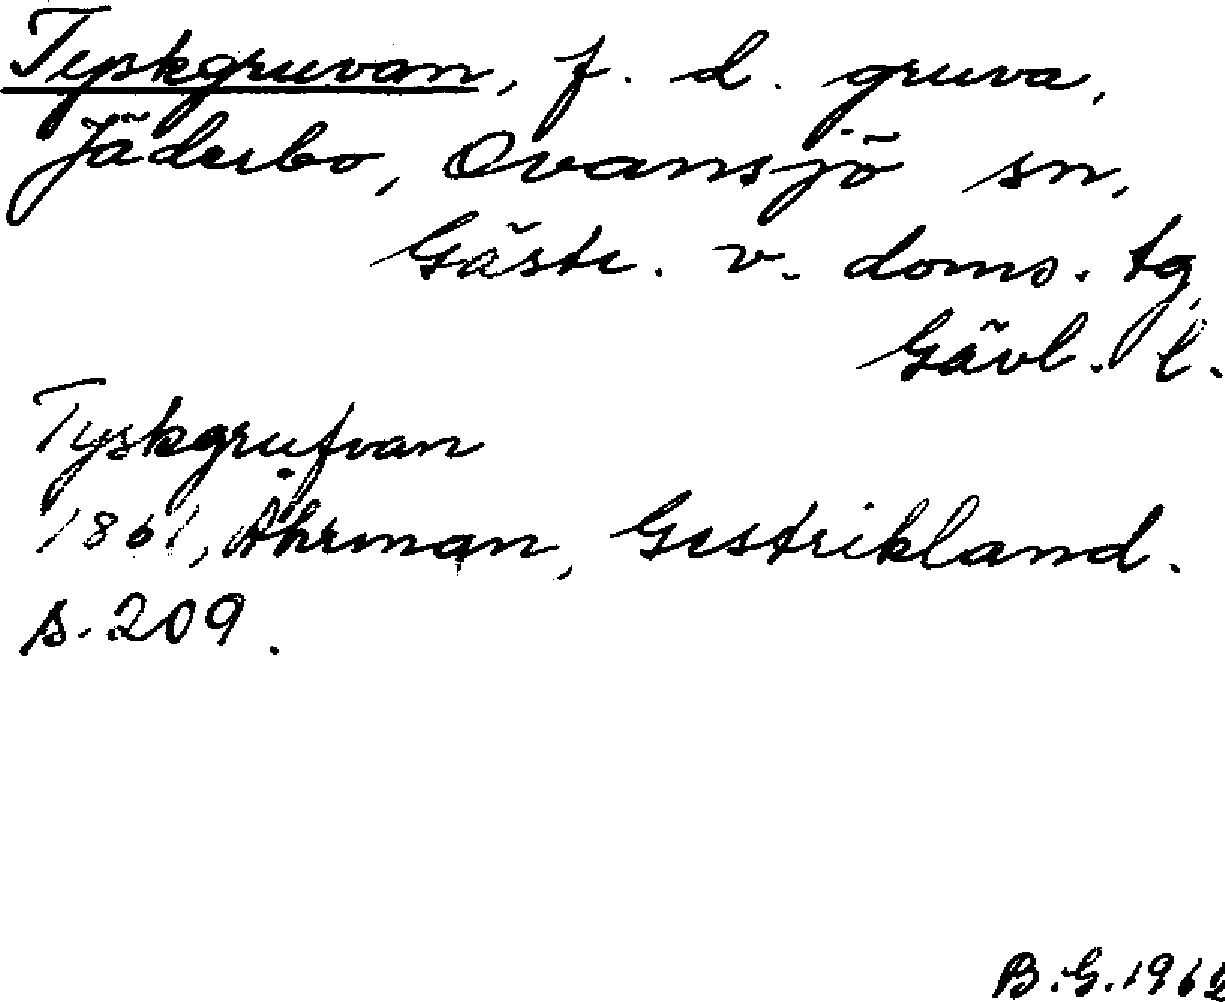 Tyskgruvan, f. d. gruva,
Jäderbo, Ovansjö sn,
Gästr. v. doms. tg,
Gävl. l.
Tyskgrufvan
1861, Åhrman, Gestrikland.
s. 209.
B.G. 1962